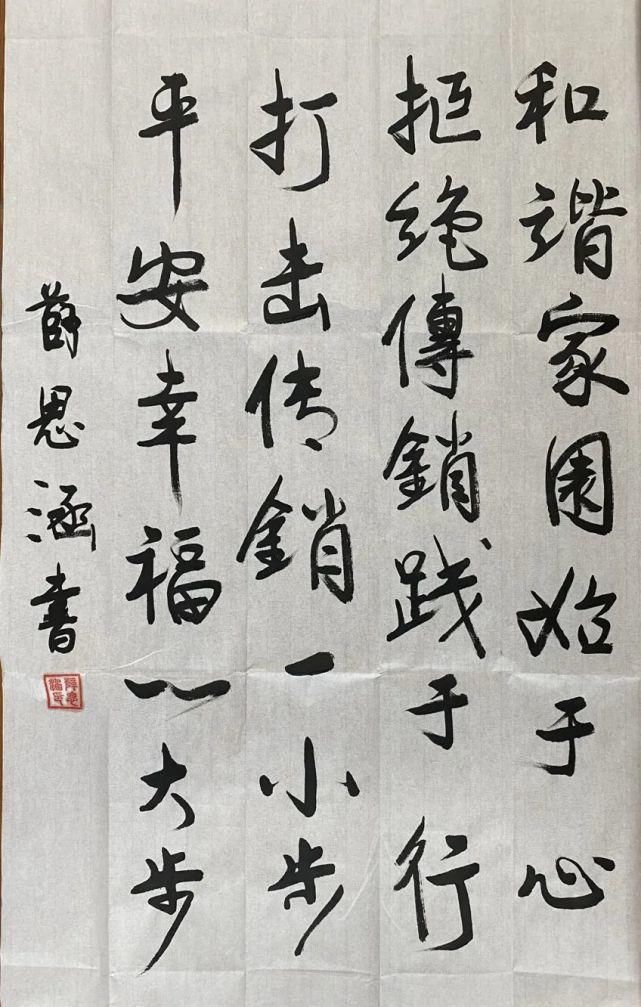 和谐家园始于心
拒绝傳銷践于行
打击传銷一小步
平安幸福一大步
薛思涵书